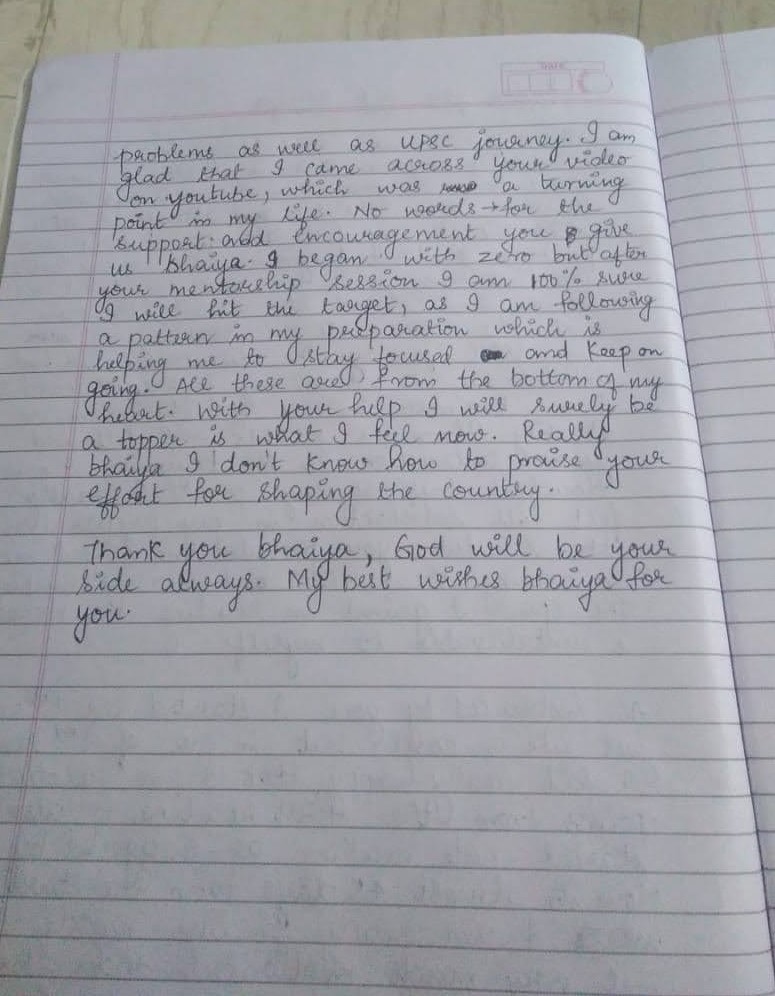 DATE
problems as well as UPSC journey. I am
glad that I came across your video
on youtube, which was a turning
point in my life. No words for the
support and encouragement you give
us bhaiya. I began with zero but after
your mentorship session I am 100% sure
I will hit the target, as I am following
a pattern in my preparation which is
helping me to stay focused and keep on
going. All these are from the bottom of my
heart. With your help I will surely be
a topper is what I feel now. Really
bhaiya I don't know how to praise your
effort for shaping the country.
Thank you bhaiya, God will be your
side always. My best wishes bhaiya for
you.